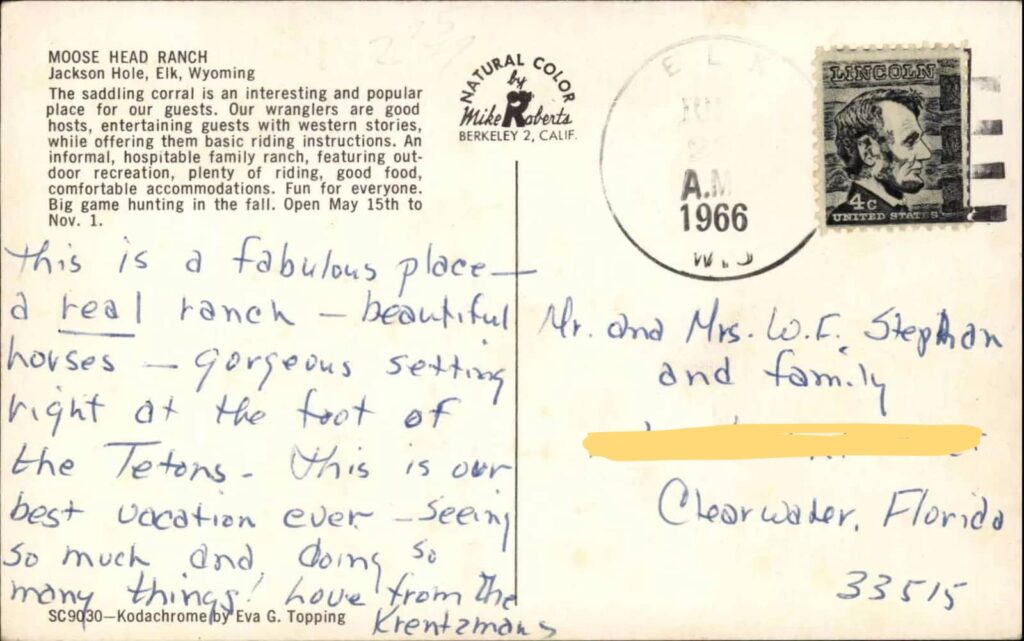 MOOSE HEAD RANCH
Jackson Hole, Elk, Wyoming
The saddling corral is an interesting and popular
place for our guests. Our wranglers are good
hosts, entertaining guests with western stories,
while offering them basic riding instructions. An
informal, hospitable family ranch, featuring out-
door recreation, plenty of riding, good food,
comfortable accommodations. Fun for everyone.
Big game hunting in the fall. Open May 15th to
Nov. 1.
NATURAL COLOR
by
Mike Roberts
BERKELEY 2, CALIF.
ELK
A.M
1966
WYO
LINCOLN
4c
UNITED STATES
This is a fabulous place—
a real ranch — beautiful
horses — gorgeous setting
right at the foot of
the Tetons - This is our
best vacation ever - seeing
so much and doing so
many things! Love from the
Krentzmans
Mr. and Mrs. W.F. Stephan
and family
Clearwater, Florida
33515
SC9030—Kodachrome by Eva G. Topping